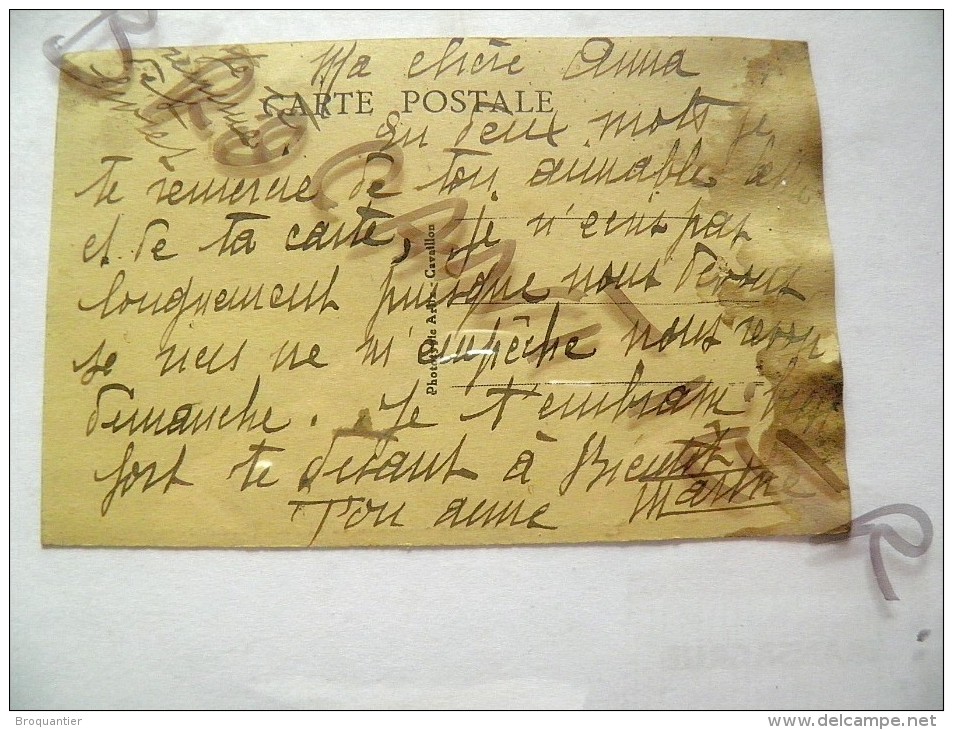 Ma chère Anna
CARTE POSTALE
En deux mots je
te remercie de ton aimable
et de ta carte, Je n'ecris pas
longuement puisque nous devons
se ne m'empêche nous
dimanche. Je t'embrasse bien
fort te disant à Bientôt
Ton amie Martine
Cavaillon
Broquantier
www.delcampe.net